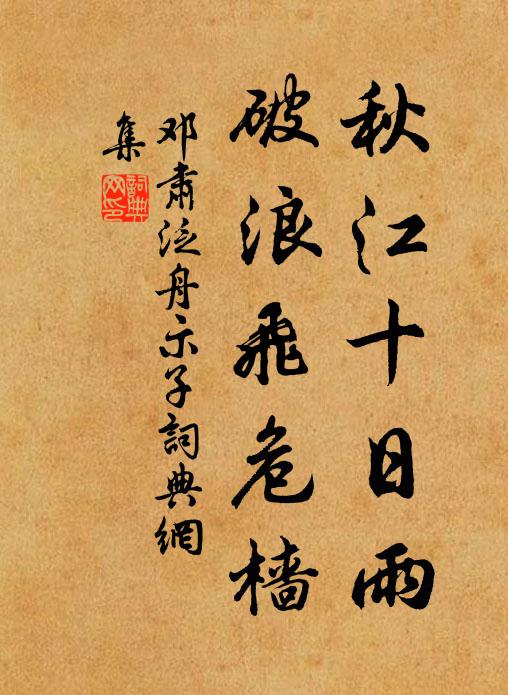 秋江十日雨
破浪飛危檣
邓肅泛舟示子詞典網
集
詞典
网印